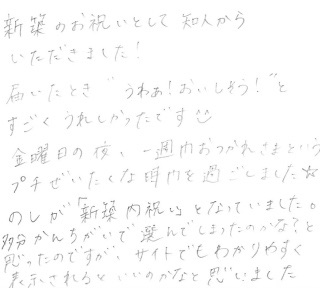 新築のお祝いとして知人から
いただきました!
届いたとき"うわぁ!おいしそう!"と
すごくうれしかったです
金曜日の夜、一週間おつかれさまという
プチぜいたくな時間を過ごしました☆
のしが「新築内祝い」となっていました。
多分かんちがいで選んでしまったのかな?と
思ったのですが、サイトでもわかりやすく
表示されるといいのかなと思いました